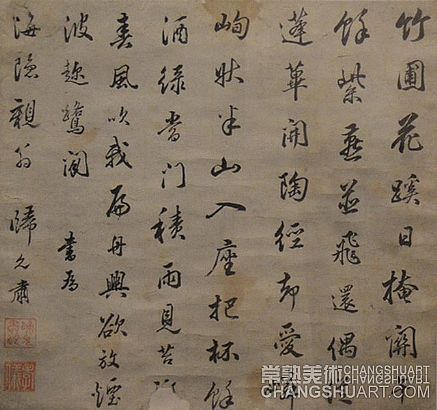 竹圃花蹊日掩關
餘紫燕並飛還偶從
蓬蓽開陶徑却愛
峋狀米山入座把杯餘
酒綠當門積雨見苔
春風吹我扁舟興欲放煙
波趁鷺閒 書為
海隱親翁 歸允肅
常熟美術 CHANGSHUART
CHANGSHUART.COM